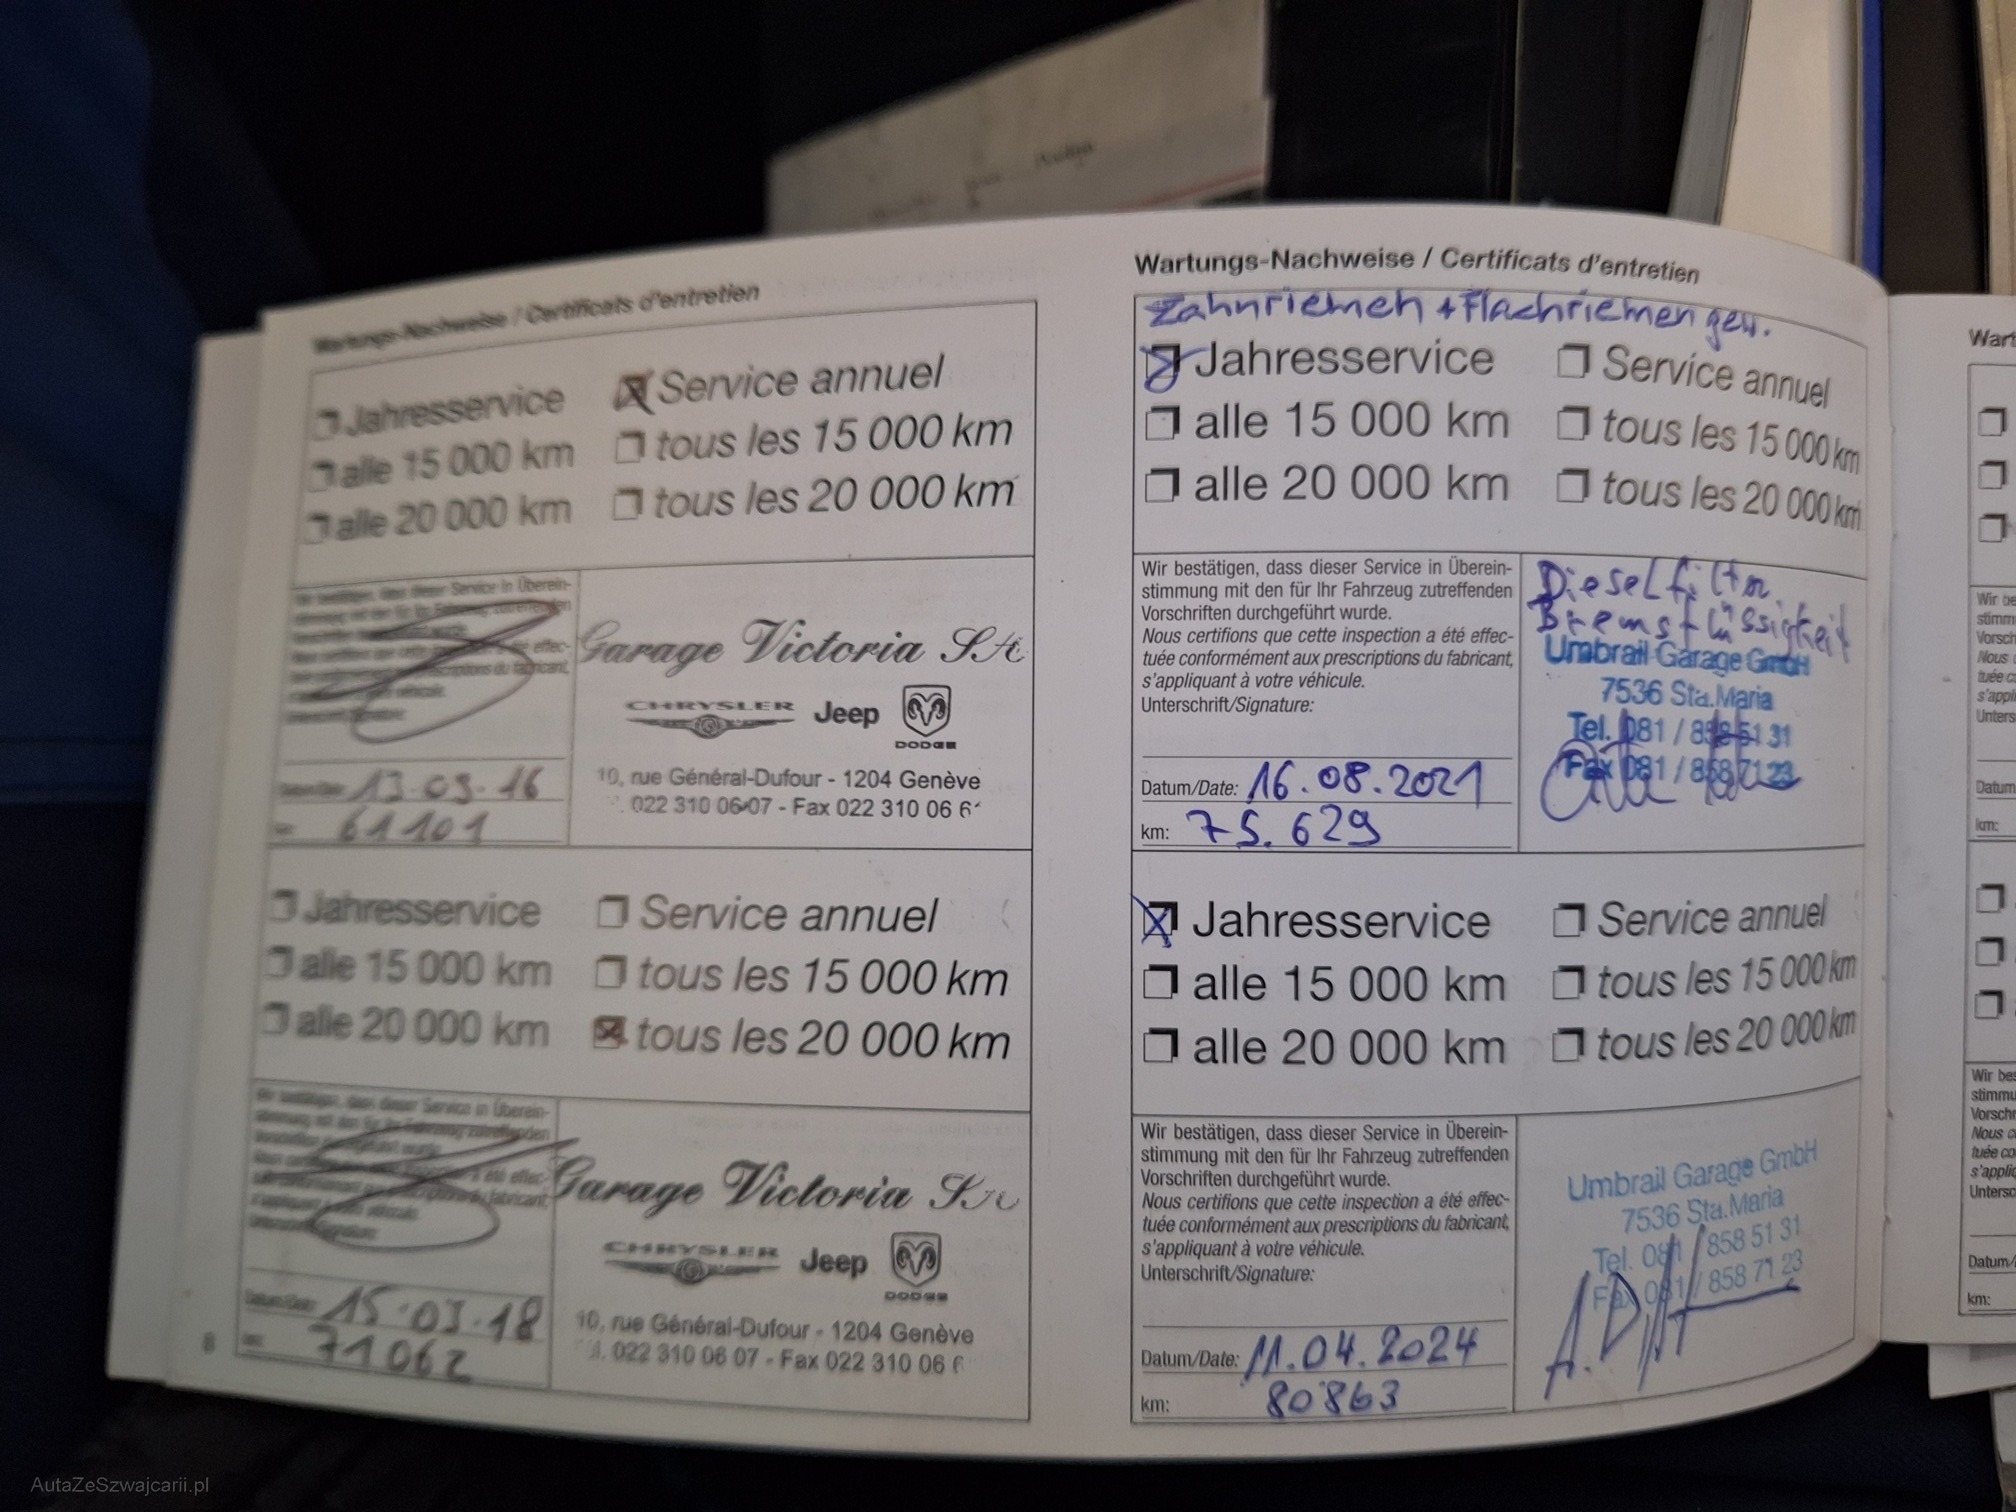 Wartungs-Nachweise / Certificats d'entretien
Jahresservice
Service annuel
alle 15 000 km
tous les 15 000 km
alle 20 000 km
tous les 20 000 km
Garage Victoria SA
CHRYSLER Jeep
DODGE
10, rue Général-Dufour - 1204 Genève
022 310 06 07 - Fax 022 310 06 6
13.03.16
61101
Jahresservice
Service annuel
alle 15 000 km
tous les 15 000 km
alle 20 000 km
tous les 20 000 km
Wir bestätigen, dass dieser Service in Überein-
Garage Victoria SA
CHRYSLER Jeep
DODGE
10, rue Général-Dufour - 1204 Genève
022 310 06 07 - Fax 022 310 06 6
Datum/Date: 15.03.18
71062
8
Wartungs-Nachweise / Certificats d'entretien
Zahnriemen + Flachriemen gew.
Jahresservice
Service annuel
alle 15 000 km
tous les 15 000 km
alle 20 000 km
tous les 20 000 km
Wir bestätigen, dass dieser Service in Überein-
stimmung mit den für Ihr Fahrzeug zutreffenden
Vorschriften durchgeführt wurde.
Nous certifions que cette inspection a été effec-
tuée conformément aux prescriptions du fabricant,
s'appliquant à votre véhicule.
Unterschrift/Signature:
Dieselfilter
Bremsflüssigkeit
Umbrail Garage GmbH
7536 Sta.Maria
Tel. 081 / 858 51 31
Fax 081 / 858 71 23
Datum/Date: 16.08.2021
km: 75.629
Jahresservice
Service annuel
alle 15 000 km
tous les 15 000 km
alle 20 000 km
tous les 20 000 km
Wir bestätigen, dass dieser Service in Überein-
stimmung mit den für Ihr Fahrzeug zutreffenden
Vorschriften durchgeführt wurde.
Nous certifions que cette inspection a été effec-
tuée conformément aux prescriptions du fabricant,
s'appliquant à votre véhicule.
Unterschrift/Signature:
Umbrail Garage GmbH
7536 Sta.Maria
Tel. 081 / 858 51 31
Fax 081 / 858 71 23
Datum/Date: 11.04.2024
km: 80'863
Wart
Wir be
stimm
Vorsch
Nous
tuée c
s'appli
Unters
Datum
km:
Wir bes
stimmu
Vorschr
Nous c
tuée co
s'appliq
Untersc
Datum/
km:
AutaZeSzwajcarii.pl